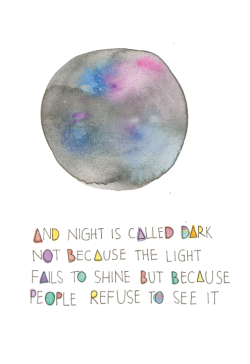 AND NIGHT IS CALLED DARK
NOT BECAUSE THE LIGHT
FAILS TO SHINE BUT BECAUSE
PEOPLE REFUSE TO SEE IT